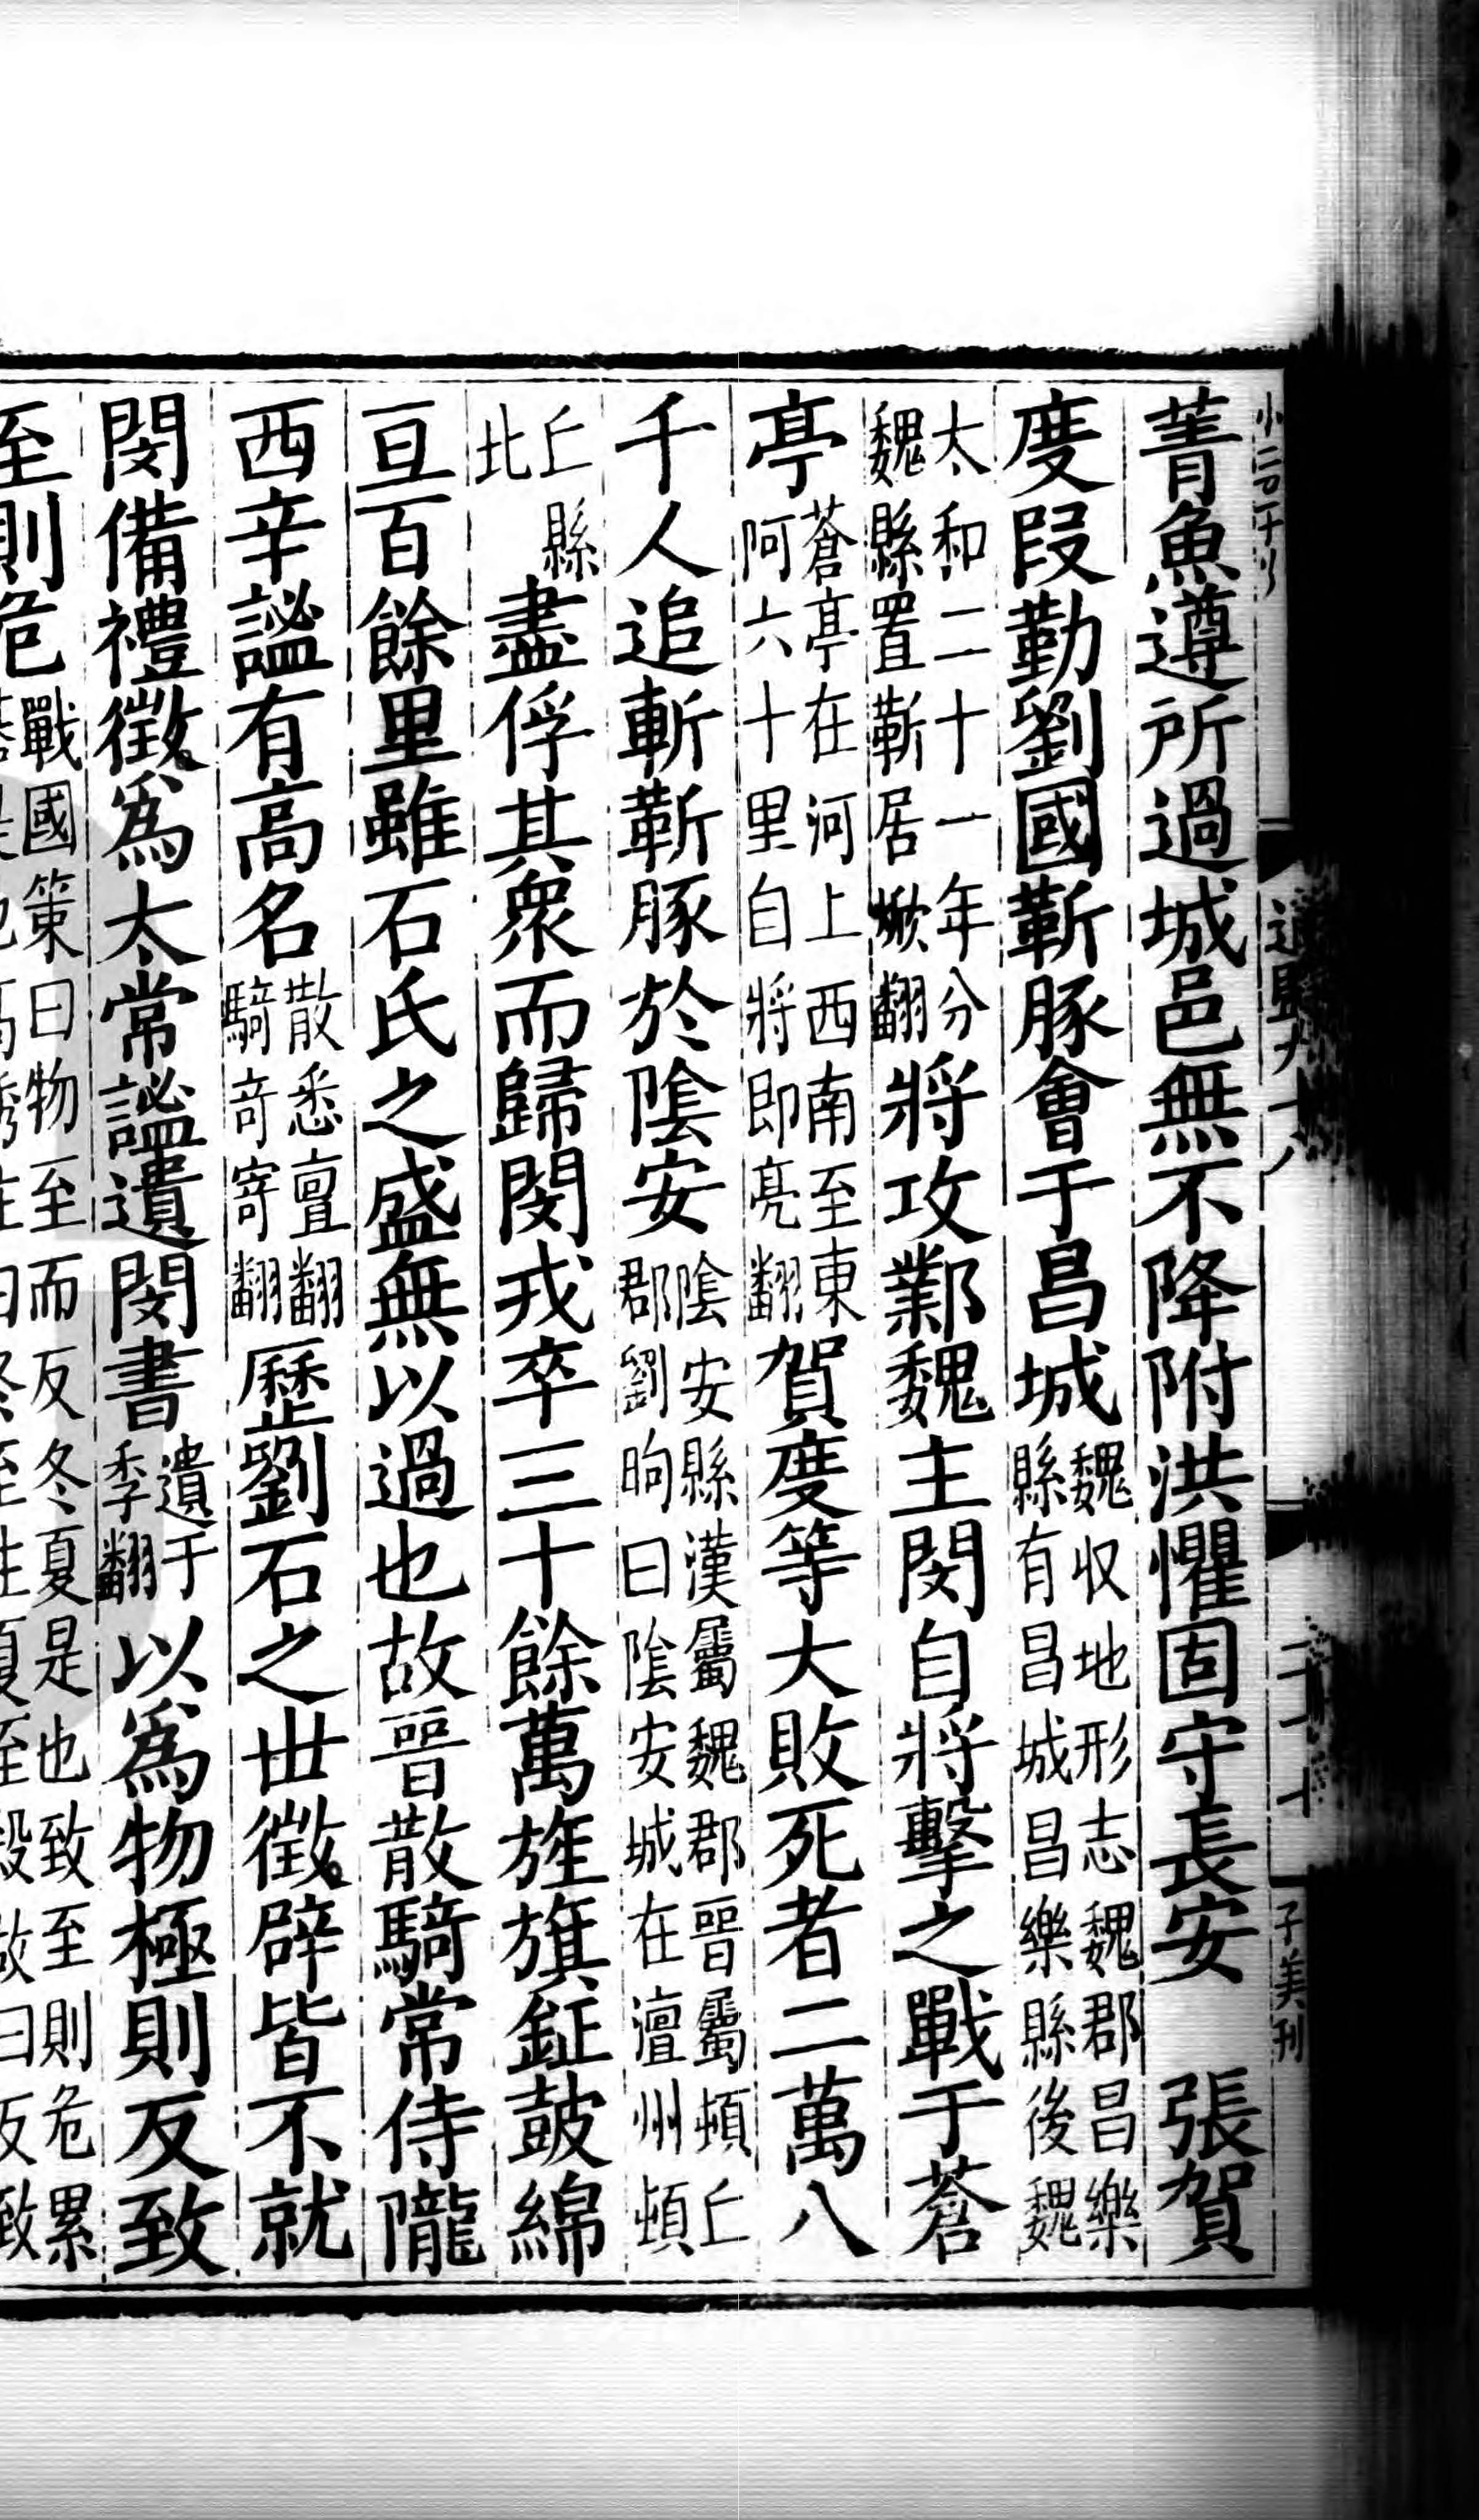 菁魚遵所過城邑無不降附洪懼固守長安　張賀
度段勤劉國靳豚會于昌城魏收地形志魏郡昌樂縣有昌城昌樂縣後魏
太和二十一年分魏縣置靳居焮翻將攻鄴魏主閔自將擊之戰于蒼
亭蒼亭在河上西南至東阿六十里自將即亮翻賀度等大敗死者二萬八
千人追斬靳豚於隂安隂安縣漢屬魏郡晉屬頓丘郡劉昫曰隂安城在澶州頓
丘縣北盡俘其衆而歸閔戎卒三十餘萬旌旗鉦鼓綿
亘百餘里雖石氏之盛無以過也故晉散騎常侍隴
西辛謐有高名散悉亶翻騎奇寄翻歷劉石之世徵辟皆不就
閔備禮徵爲太常謐遺閔書遺于季翻以爲物極則反致
至則危戰國策曰物至而反冬夏是也致至則危累